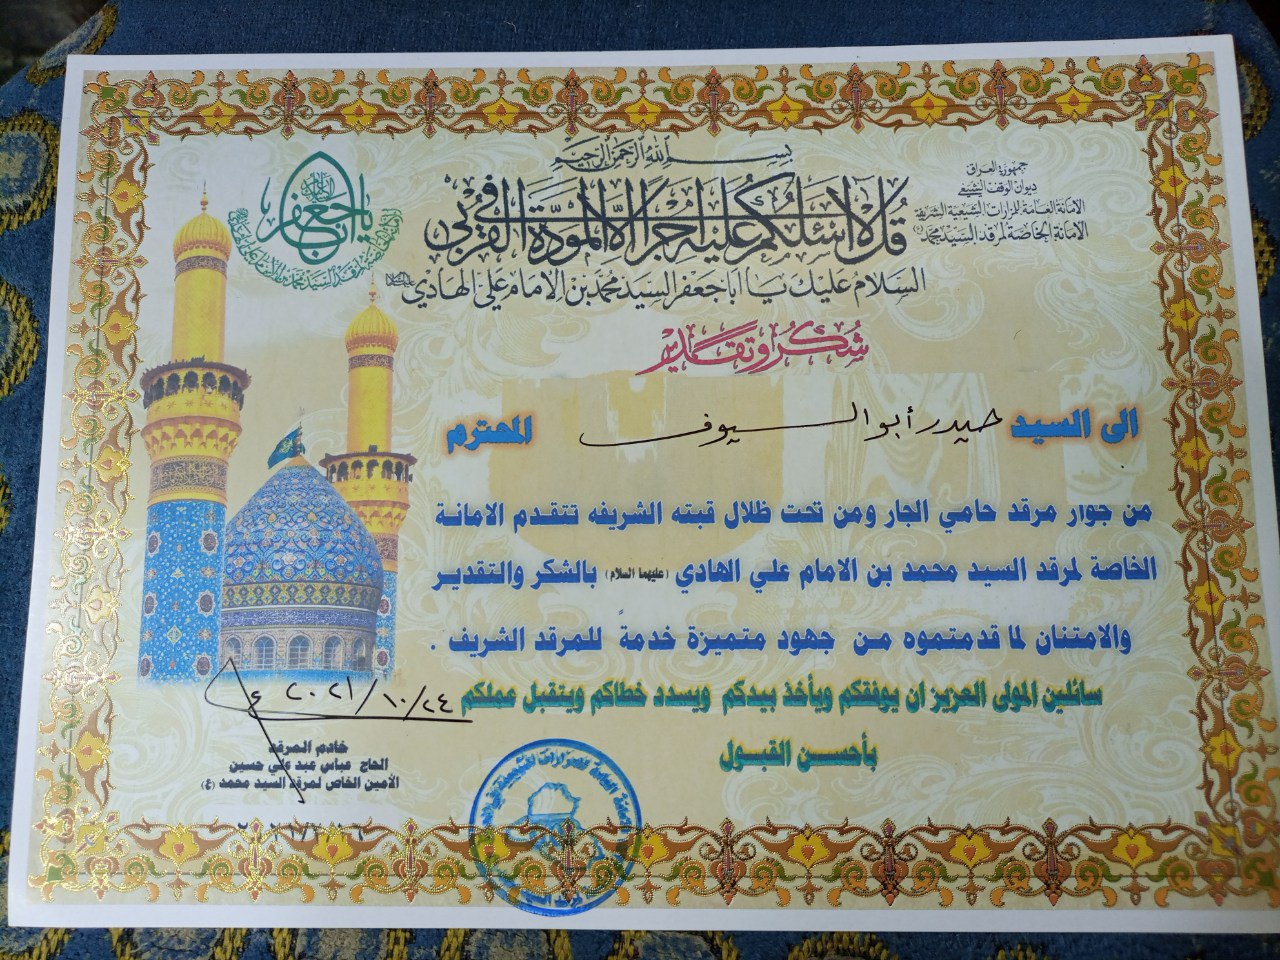 بسم الله الرحمن الرحيم
قل لا اسئلكم عليه اجرا الا المودة في القربى
السلام عليك يا اباجعفر السيد محمد بن الامام علي الهادي
جمهورية العراق
ديوان الوقف الشيعي
الامانة العامة للمزارات الشيعية الشريفة
الامانة الخاصة لمرقد السيد محمد (ع)
يا ابا جعفر
شكر وتقدير
الى السيد حيدر أبو السيوف المحترم
من جوار مرقد حامي الجار ومن تحت ظلال قبته الشريفه تتقدم الامانة
الخاصة لمرقد السيد محمد بن الامام علي الهادي (عليهما السلام) بالشكر والتقدير
والامتنان لما قدمتموه من جهود متميزة خدمةً للمرقد الشريف .
سائلين المولى العزيز ان يوفقكم ويأخذ بيدكم ويسدد خطاكم ويتقبل عملكم
بأحسن القبول
٢٠٢١/١٠/٢٤
خادم المرقد
الحاج عباس عبد علي حسين
الأمين الخاص لمرقد السيد محمد (ع)